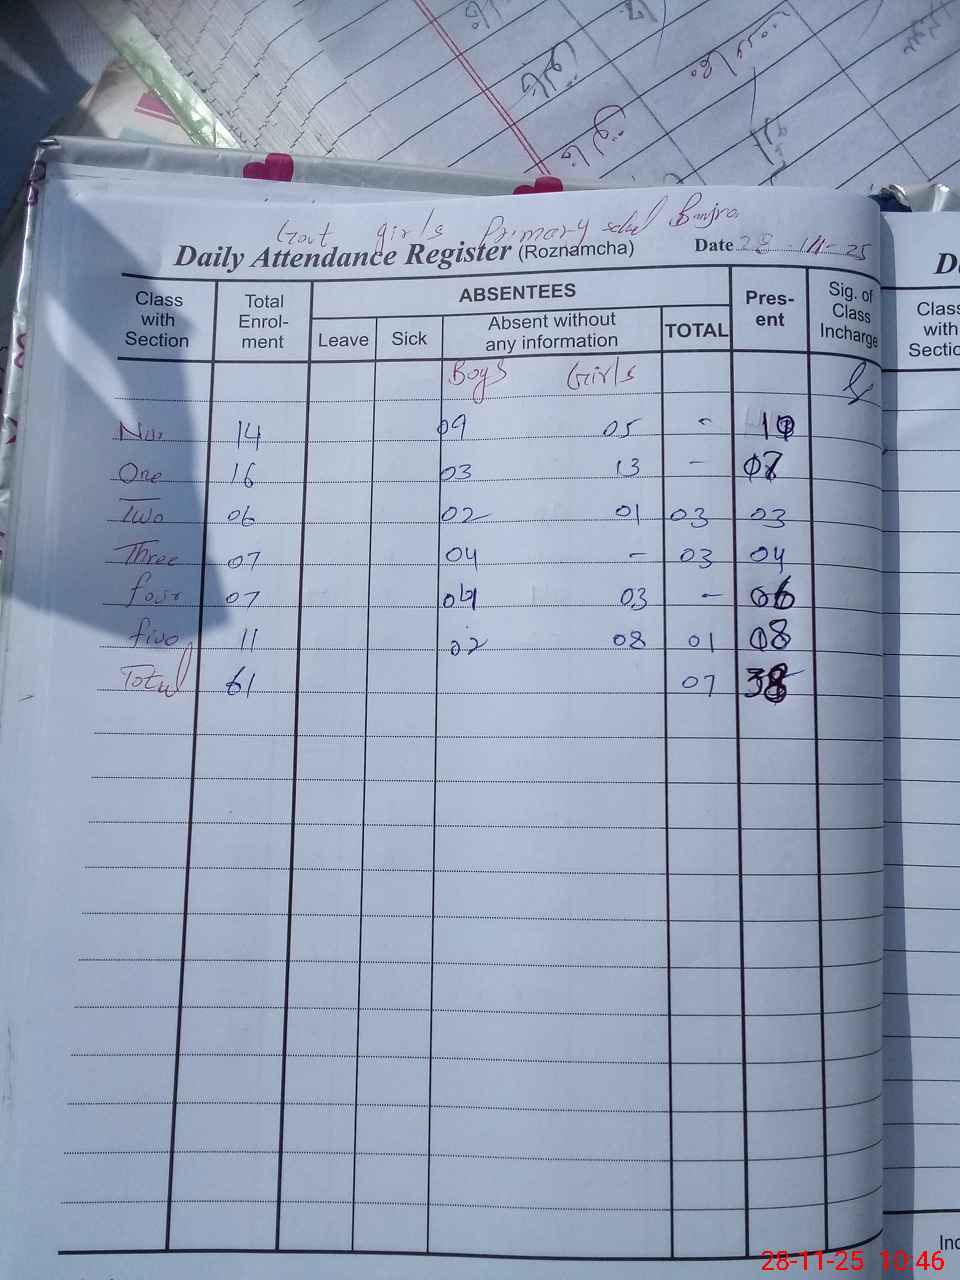 Govt girls Primary school Banjra
Daily Attendance Register (Roznamcha) Date 28-11-25
Class with Section Total Enrol-ment ABSENTEES Leave Sick Absent without any information TOTAL Pres-ent Sig. of Class Incharge
Boys Girls
Nur 14 09 05 -
One 16 03 13 - 07
Two 06 02 01 03 03
Three 07 04 - 03 04
four 07 04 03 - 06
five 11 02 08 01 08
Total 61 07 38
Class
with
Sectio
28-11-25 10:46